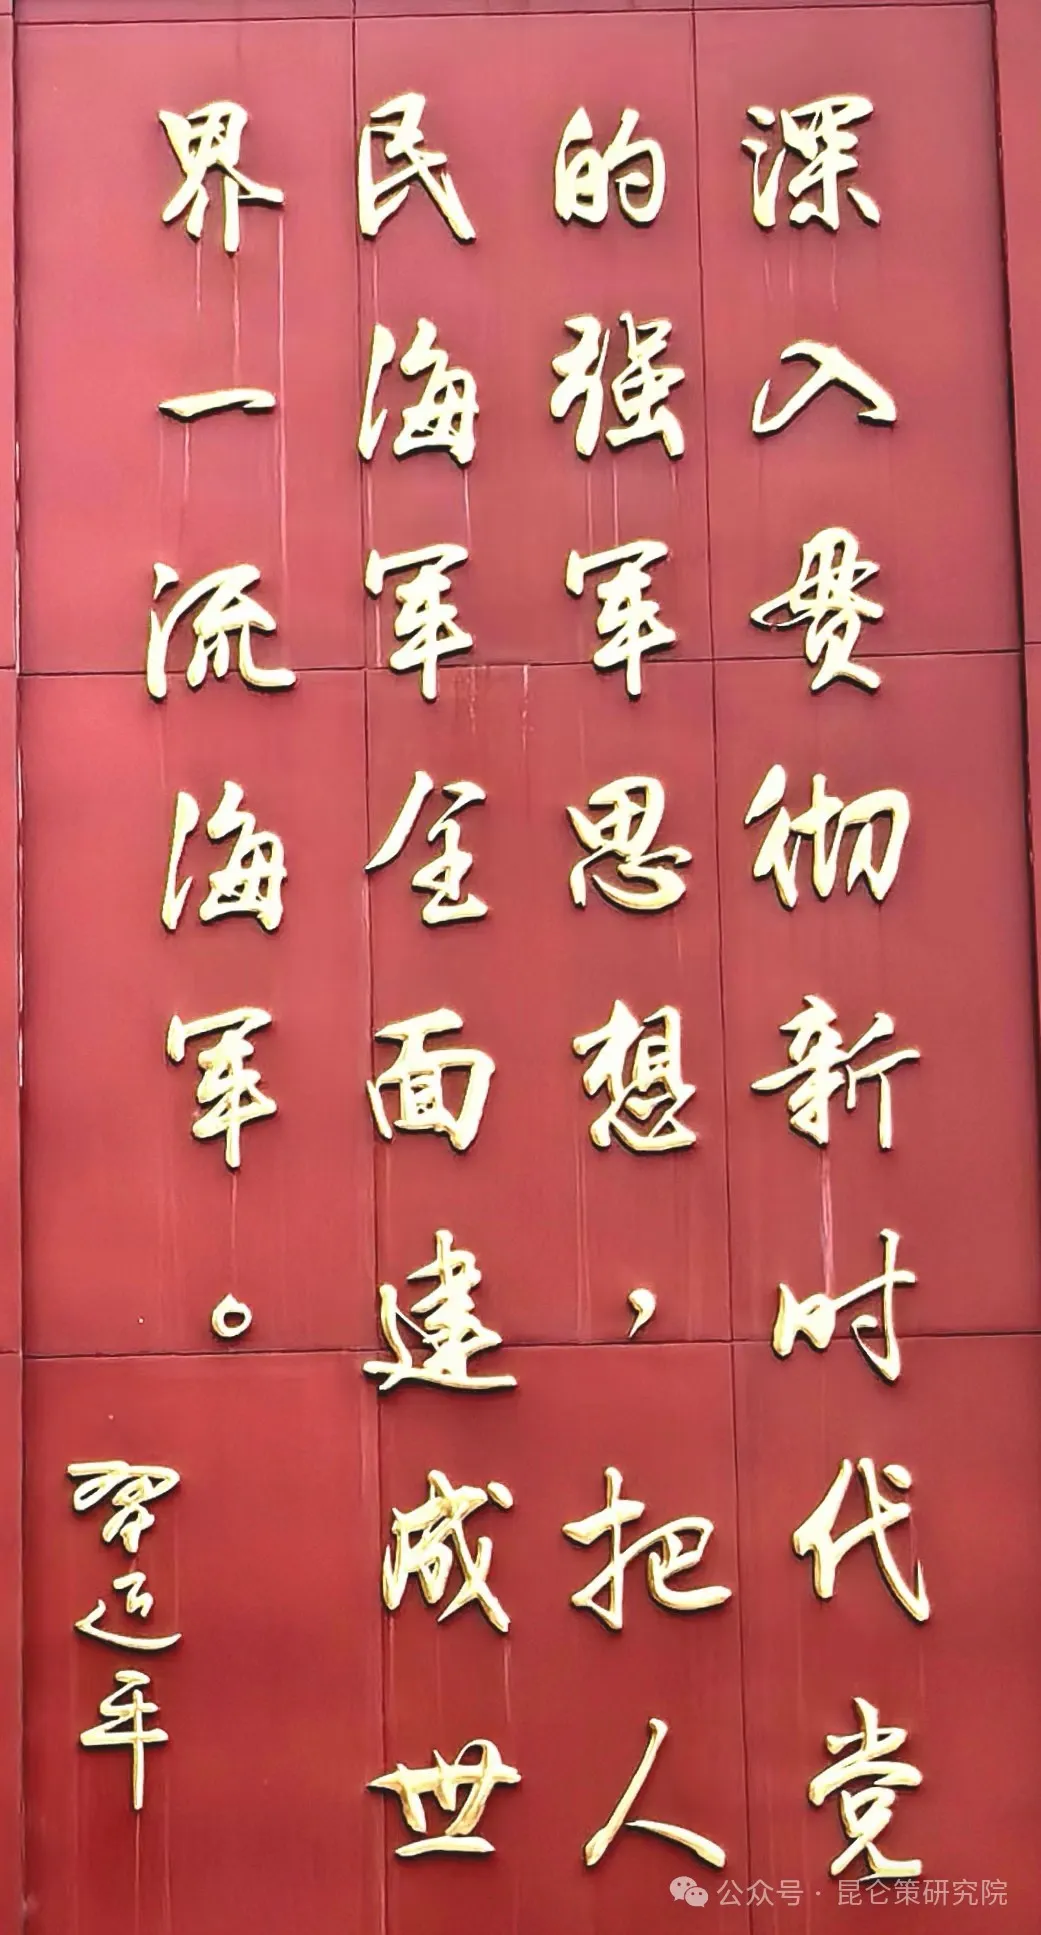 深入贯彻新时代党
的强军思想，把人
民海军全面建成世
界一流海军。
习近平
公众号·昆仑策研究院